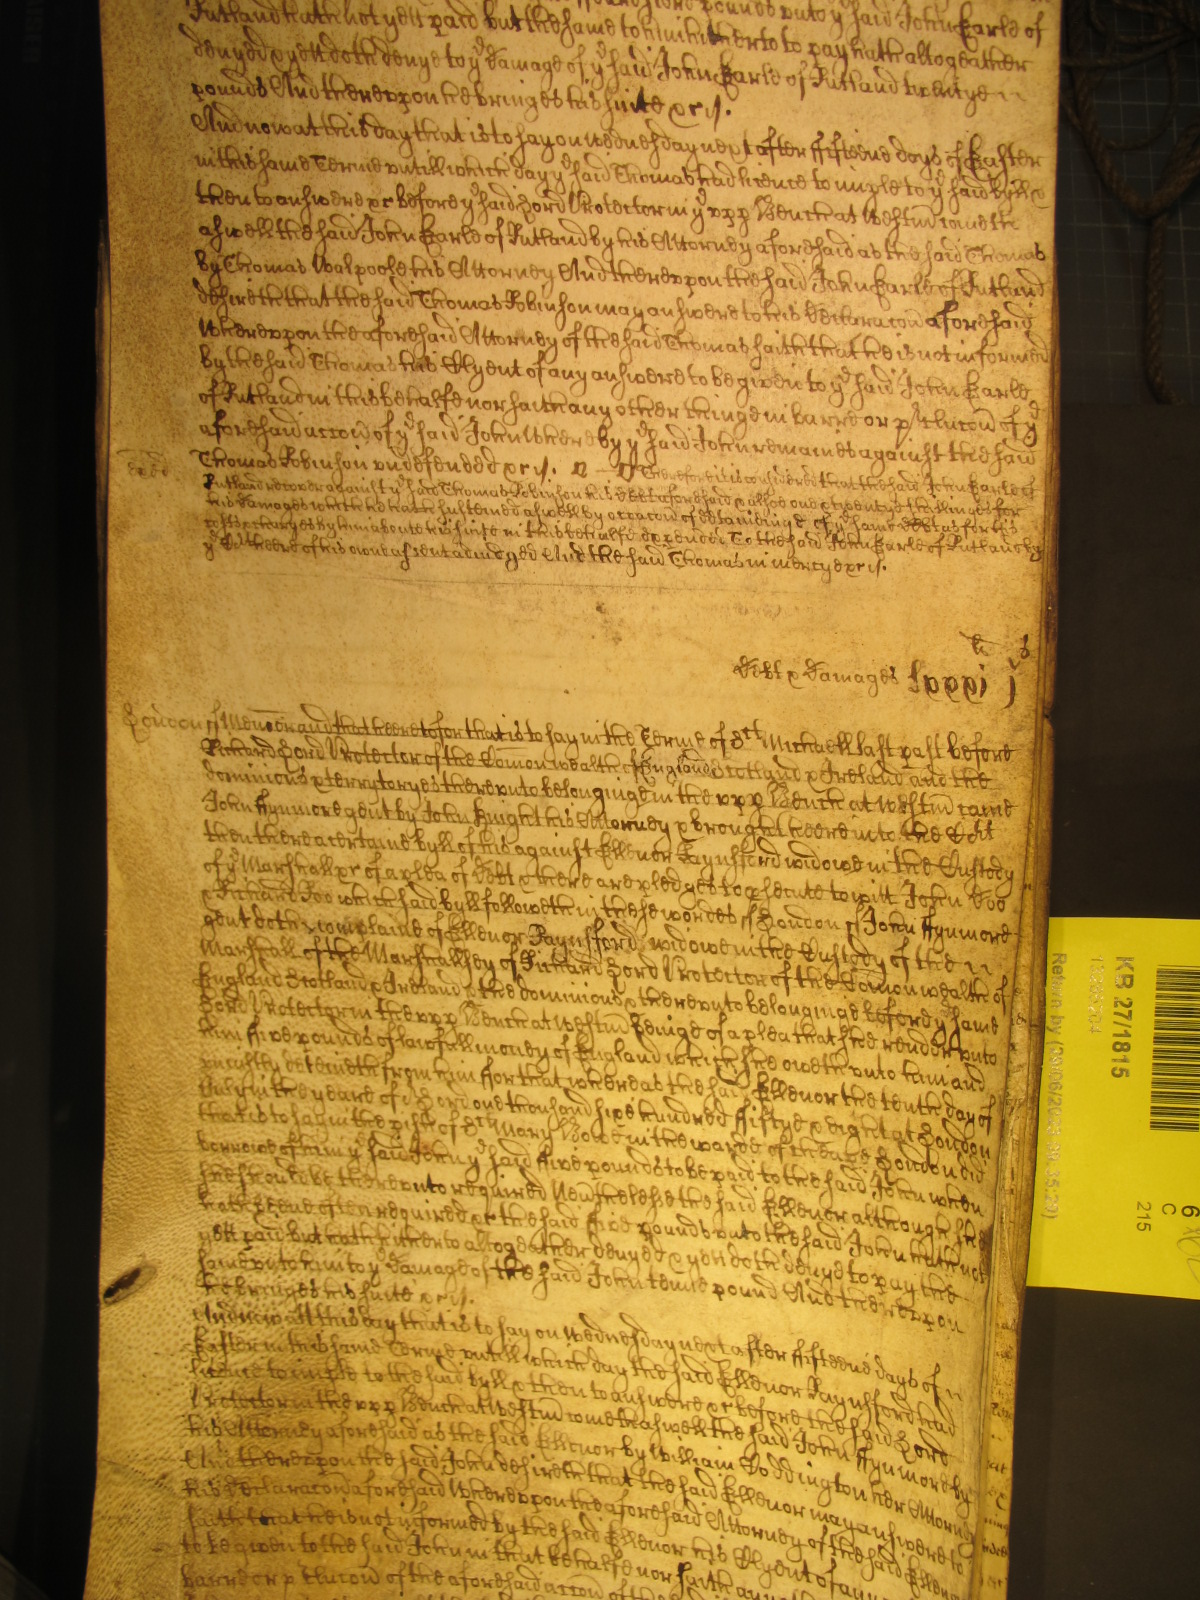 pounds unto ye said John Earle of
Rutland hath not yett paid but the same to him hitherto to pay hath altogeather
denyed & yett doth denye to ye damage of ye said John Earle of Rutland twentye
pounds And thereuppon he bringes his suite &c rs.
And now at this day that is to say on wednesday next after fifteene dayes of Easter
in this same Terme untill which day ye said Thomas had licence to imple to ye said byll &
then to answere &c before ye said Lord Protector in ye upp Bench at Westm cometh
aswell the said John Earle of Rutland by his Attorney aforesaid as the said Thomas
by Thomas Walpoole his Attorney And thereuppon the said John Earle of Rutland
desireth that the said Thomas Robinson may answere to his declaracon aforesaid
Whereuppon the aforesaid Attorney of the said Thomas saith that he is not informed
by the said Thomas his Clyent of any answere to be given to ye said John Earle
of Rutland in this behalfe nor saith any other thinge in barre or pclucon of ye
aforesaid accon of ye said John whereby ye said John remaines against the said
Thomas Robinson undefended &c rs. Therefore it is considered that the said John Earle of
Rutland recover against ye said Thomas Robinson his debt aforesaid & allsoe one & twentye shillings for
his damages which he hath susteined aswell by occacon of detaininge of ye same debt as for his
costs & charges by him about his suite in this behalfe expended To the said John Earle of Rutland by
ye Cort heere of his owne assent adiudged And the said Thomas in mercy &c rs.
li s
Debt & damages lxxxi j
London ss Memorand that heeretofore that is to say in the Terme of St Michaell last past before
Richard Lord Protector of the Comonwealth of England Scotland & Ireland and the
dominions & terrytoryes thereunto belonginge in the upp Bench at Westm came
John Fynmore gent by John Knight his Attorney & brought heere into the Cort
then there a certaine byll of his against Ellenor Raynsford widowe in the Custody
of ye Marshall &c of a plea of debt & there are pledges to psecute to witt John Doo
& Richard Roo which said byll followeth in these wordes ss London ss John Fynmore
gent doth complaine of Ellenor Raynsford widowe in the Custody of the
Marshall of the Marshallsey of Richard Lord Protector of the Comonwealth of
England Scotland & Ireland & the dominions thereunto belonginge before ye same
Lord Protector in the upp Bench at Westm beinge of a plea that she render unto
him five pounds of lawfull money of England which she oweth unto him and
uniustly deteineth from him For that whereas the said Ellenor the tenth day of
July in the yeare of or Lord one thousand six hundred fiftye & eight at London
that is to say in the pish of St Mary Bowe in the warde of Cheape London did
borrowe of him ye said John ye said five pounds to be paid to the said John when
she should be thereunto required Neverthelesse the said Ellenor although she
hath beene often required &c the said five pounds unto the said John hath not
yett paid but hath hitherto altogeather denyed & yett doth denye to pay the
same unto him to ye damage of the said John tenne pound And thereuppon
he bringes his suite &c rs.
And now att this day that is to say on wednesday next after fifteene dayes of
Easter in this same Terme untill which day the said Ellenor Raynsford had
licence to imple to the said byll & then to answere &c before the said Lord
Protector in the upp Bench at Westm cometh aswell the said John Fynmore by
his Attorney aforesaid as the said Ellenor by William Doddington her Attorny
And thereuppon the said John desireth that the said Ellenor may answere to
his declaracon aforesaid Whereuppon the aforesaid Attorney of the said Ellenor
saith that he is not informed by the said Ellenor his Clyent of any
to be given to the said John in that behalfe nor saith any
barre or pclucon of the aforesaid accon of the
KB 27/1815
13369204
Return by (09/06/2023 08:35:29)
6
C
215